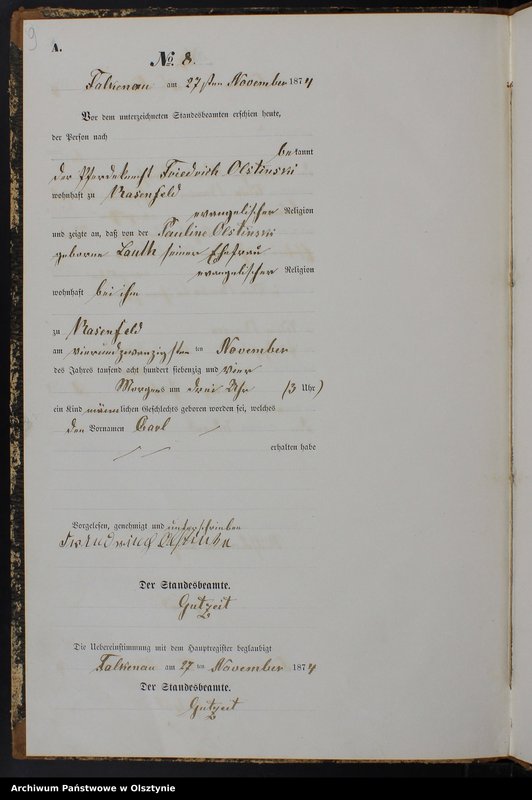 9
A.
No. 8.
Falkenau am 27sten November 1874
Vor dem unterzeichneten Standesbeamten erschien heute,
der Person nach
bekannt
der Pferdeknecht Friedrich Olstinski
wohnhaft zu Rasenfeld
evangelischer Religion
und zeigte an, daß von der Pauline Olstinski
geborne Lauth seiner Ehefrau
evangelischer Religion
wohnhaft bei ihm
zu Rasenfeld
am vierundzwanzigsten ten November
des Jahres tausend acht hundert siebenzig und vier
Morgens um drei Uhr (3 Uhr)
ein Kind männlichen Geschlechts geboren worden sei, welches
den Vornamen Carl
erhalten habe
Vorgelesen, genehmigt und unterschrieben
Der Standesbeamte.
Gutzeit
Die Uebereinstimmung mit dem Hauptregister beglaubigt
Falkenau am 27 ten November 1874
Der Standesbeamte.
Gutzeit
Archiwum Państwowe w Olsztynie